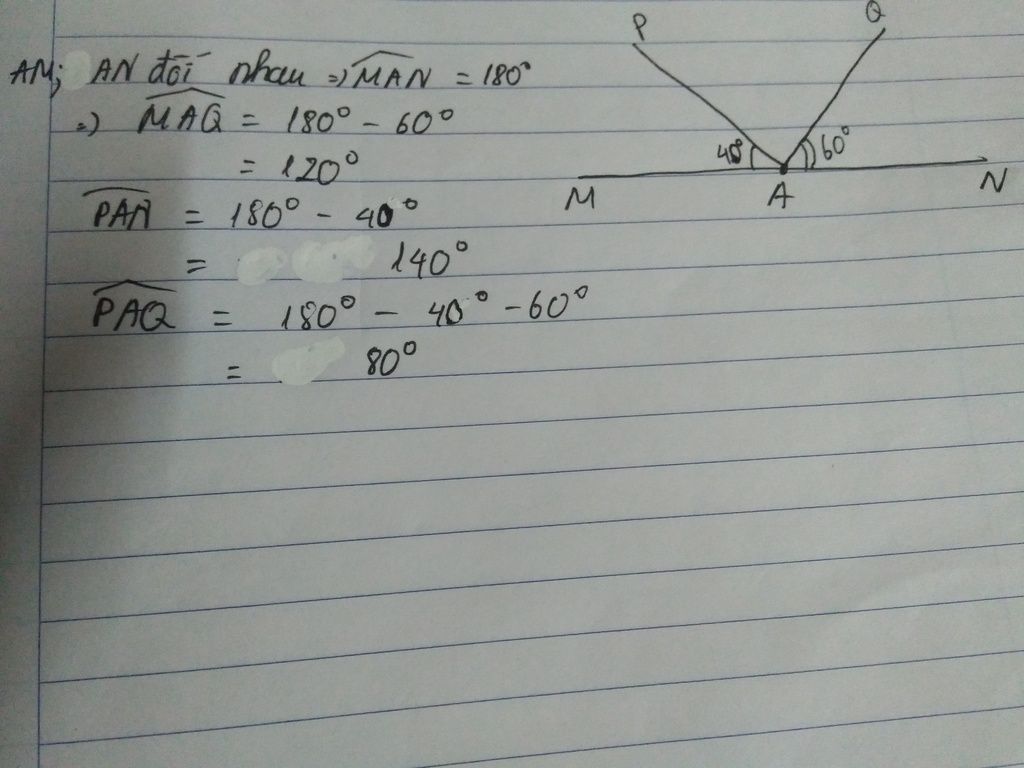 AM; AN đối nhau => MAN = 180°
=> MAQ = 180° - 60°
= 120°
PAN = 180° - 40°
= 140°
PAQ = 180° - 40° - 60°
= 80°
P Q
40° 60°
M A N